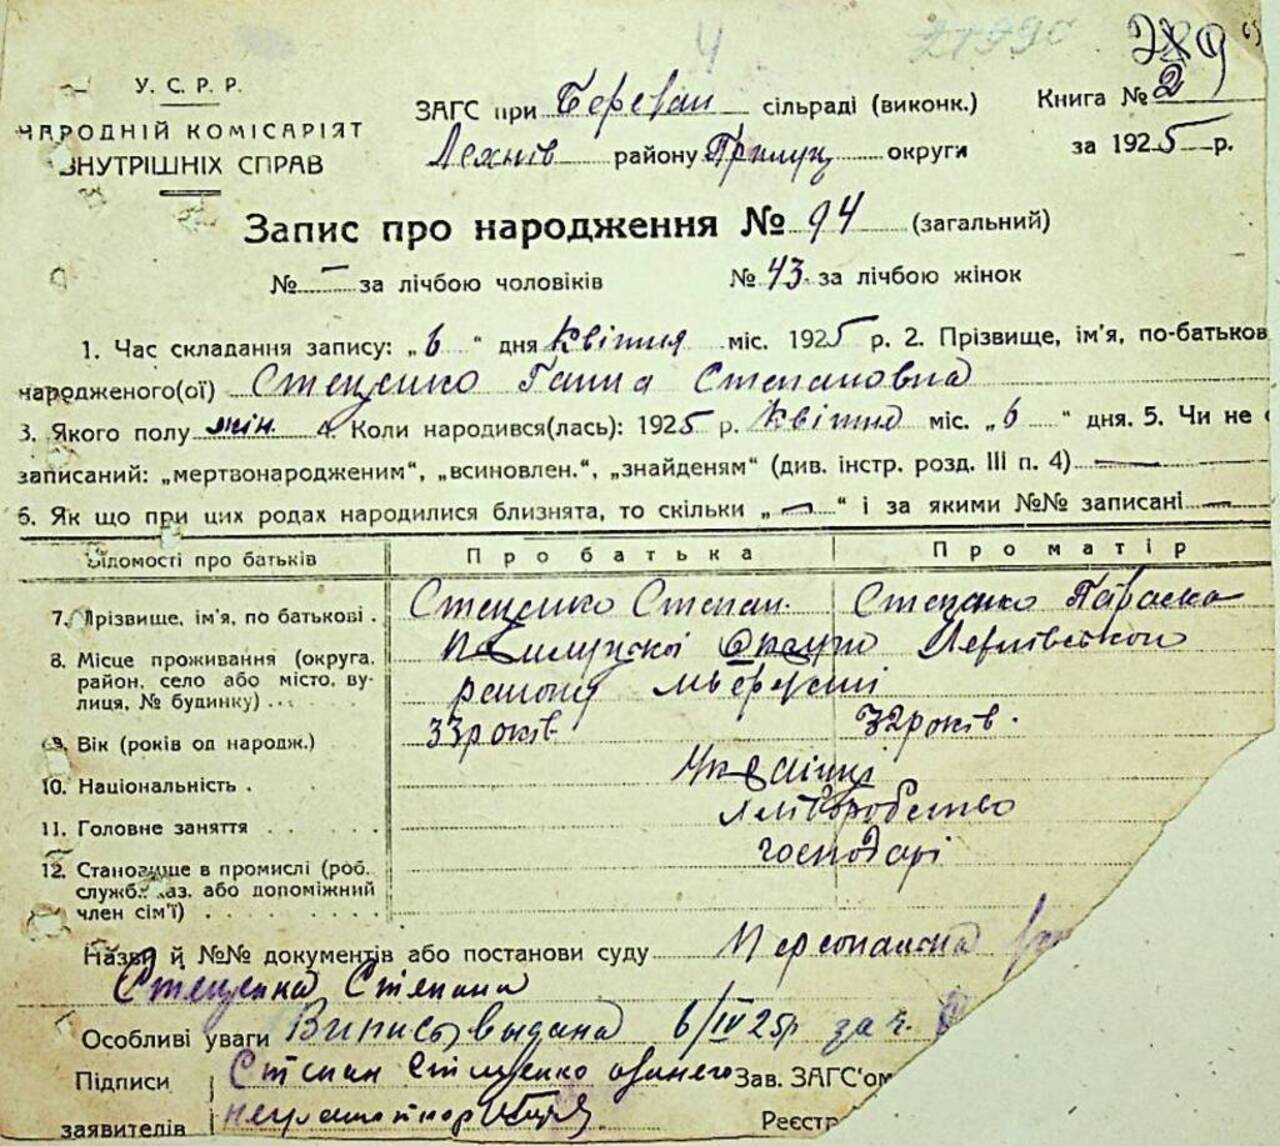 4
289
У. С. Р. Р.
НАРОДНІЙ КОМІСАРІЯТ
ВНУТРІШНІХ СПРАВ
ЗАГС при сільраді (виконк.)
району Прилуц округи
Книга № 2
за 1925 р.
Запис про народження № 94 (загальний)
№ — за лічбою чоловіків № 43 за лічбою жінок
1. Час складання запису: „6" дня Квітня міс. 1925 р. 2. Прізвище, ім'я, по-батьков
народженого(ої) Стеценко Ганна Степановна
3. Якого полу жін. 4. Коли народився(лась): 1925 р. Квітня міс. „6" дня. 5. Чи не
записаний: „мертвонародженим", „всиновлен.", „знайденям" (див. інстр. розд. III п. 4) —
6. Як що при цих родах народилися близнята, то скільки „—" і за якими №№ записані —
Відомості про батьків Про батька Про матір
7. Прізвище, ім'я, по батькові . Стеценко Степан. Стеценко Параска
8. Місце проживання (округа, район, село або місто, вулиця, № будинку) . . . Прилуцкої Округи
района
9. Вік (років од народж.) 33 років 32 років.
10. Національність . Українці
11. Головне заняття . . . . . Хліборобство
12. Становище в промислі (роб. служб. або допоміжний член сім'ї) . . . . . . . . . господарі
Назви й №№ документів або постанови суду Персональна
Стеценка Степана
Особливі уваги Випись выдана 6/IV 25р за ч.
Підписи Степан Стеценко Зав. ЗАГС'ом
заявителів Реєстр